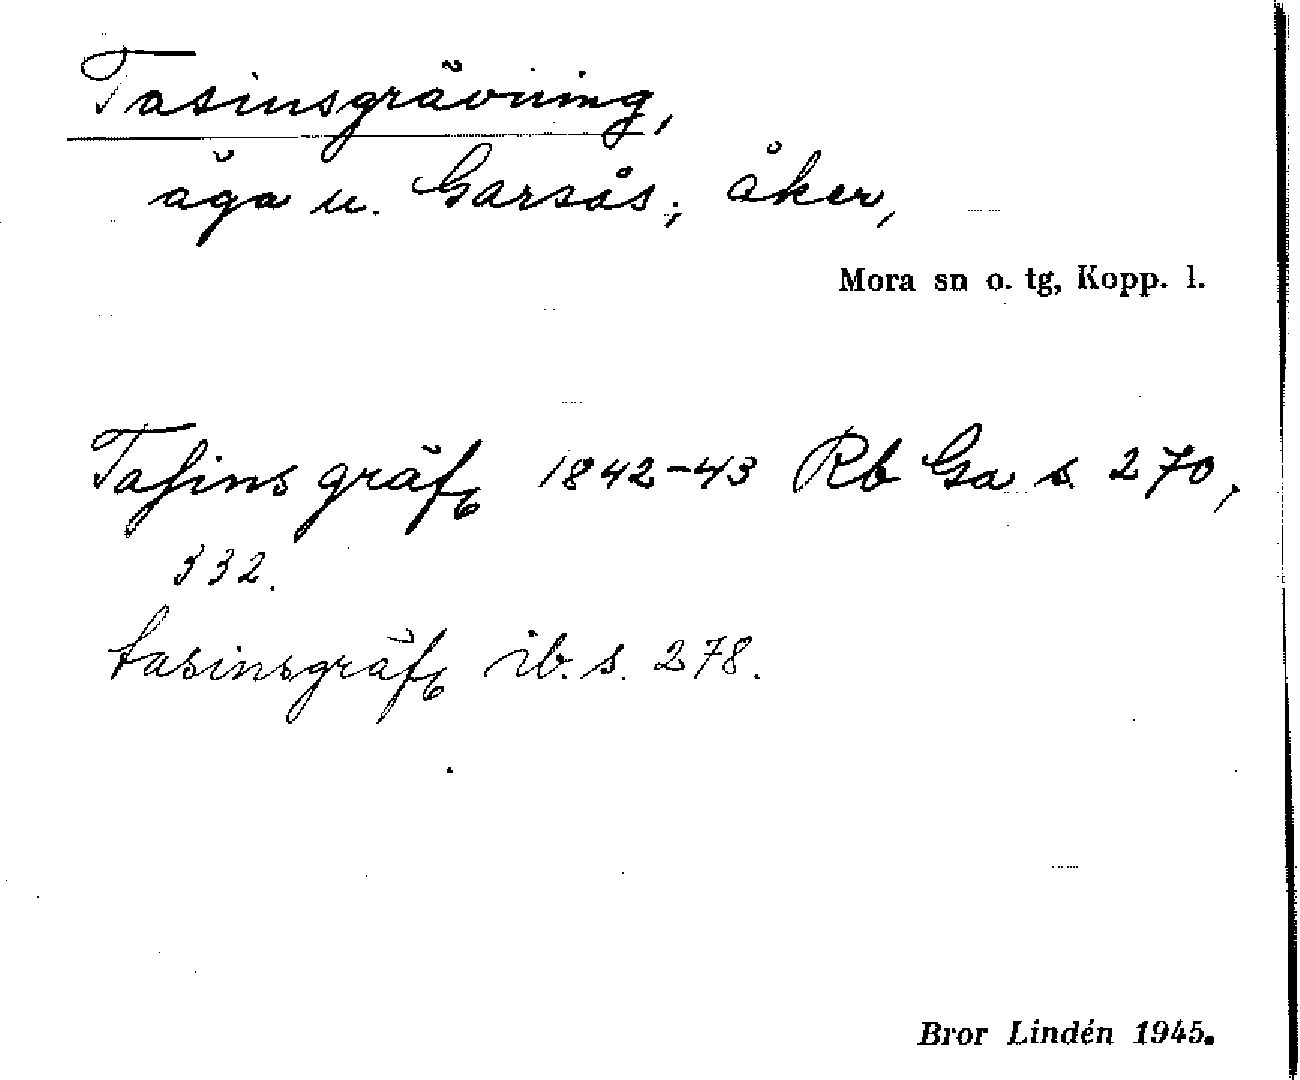 Tasinsgrävning,
äga u. Garsås; åker,
Mora sn o. tg, Kopp. l.
Taſins gräfg 1842-43 Rb Ga s. 270,
332.
tasinsgräfg ib. s. 278.
Bror Lindén 1945.